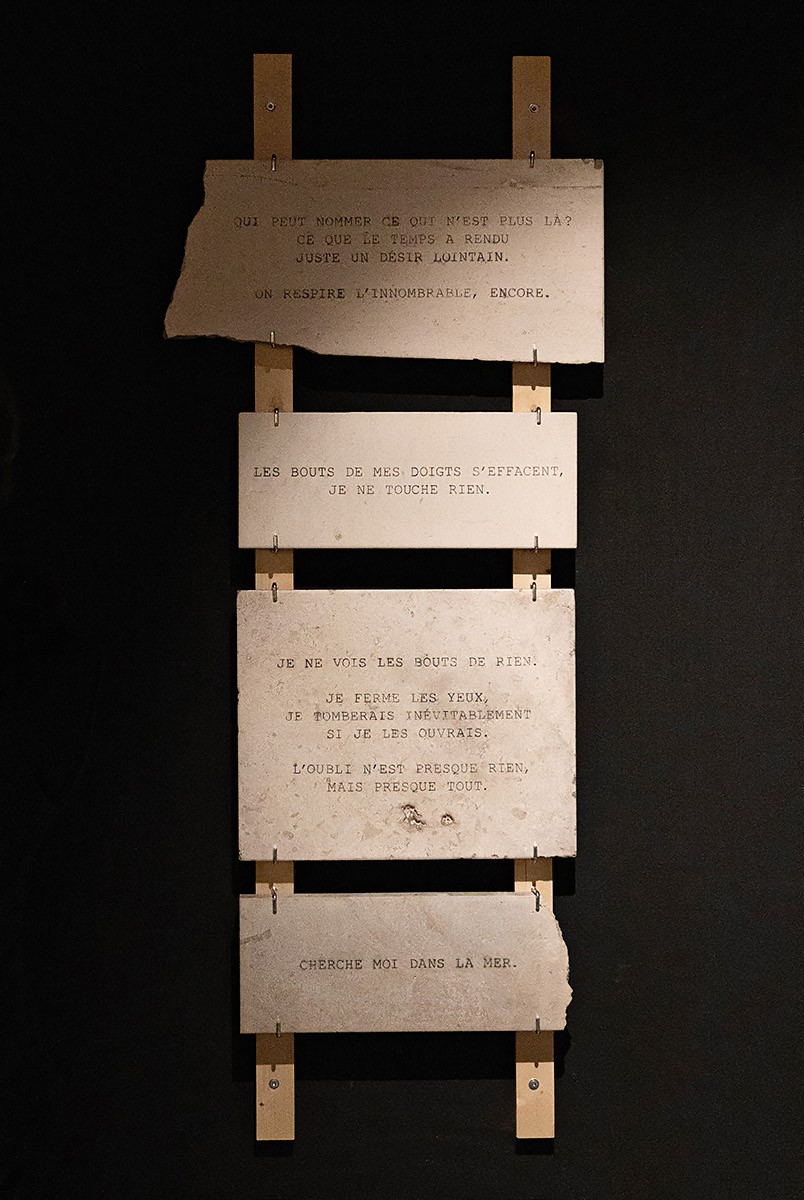 QUI PEUT NOMMER CE QUI N'EST PLUS LÀ?
CE QUE LE TEMPS A RENDU
JUSTE UN DÉSIR LOINTAIN.
ON RESPIRE L'INNOMBRABLE, ENCORE.
LES BOUTS DE MES DOIGTS S'EFFACENT,
JE NE TOUCHE RIEN.
JE NE VOIS LES BOUTS DE RIEN.
JE FERME LES YEUX,
JE TOMBERAIS INÉVITABLEMENT
SI JE LES OUVRAIS.
L'OUBLI N'EST PRESQUE RIEN,
MAIS PRESQUE TOUT.
CHERCHE MOI DANS LA MER.